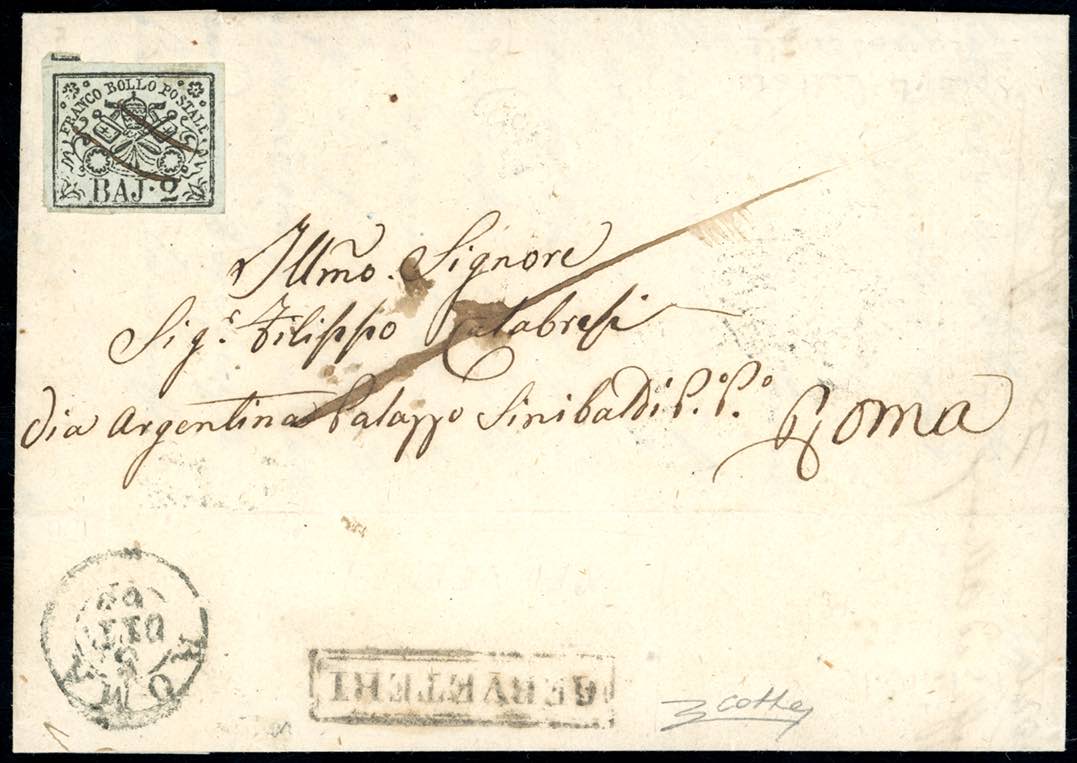 FRANCO BOLLO POSTALE
BAJ. 2
Illmo. Signore
Sigr. Filippo Calabresi
Via Argentina Palazzo Sinibaldi P.o P.o
Roma
ROMA
DIC
CERVETERI